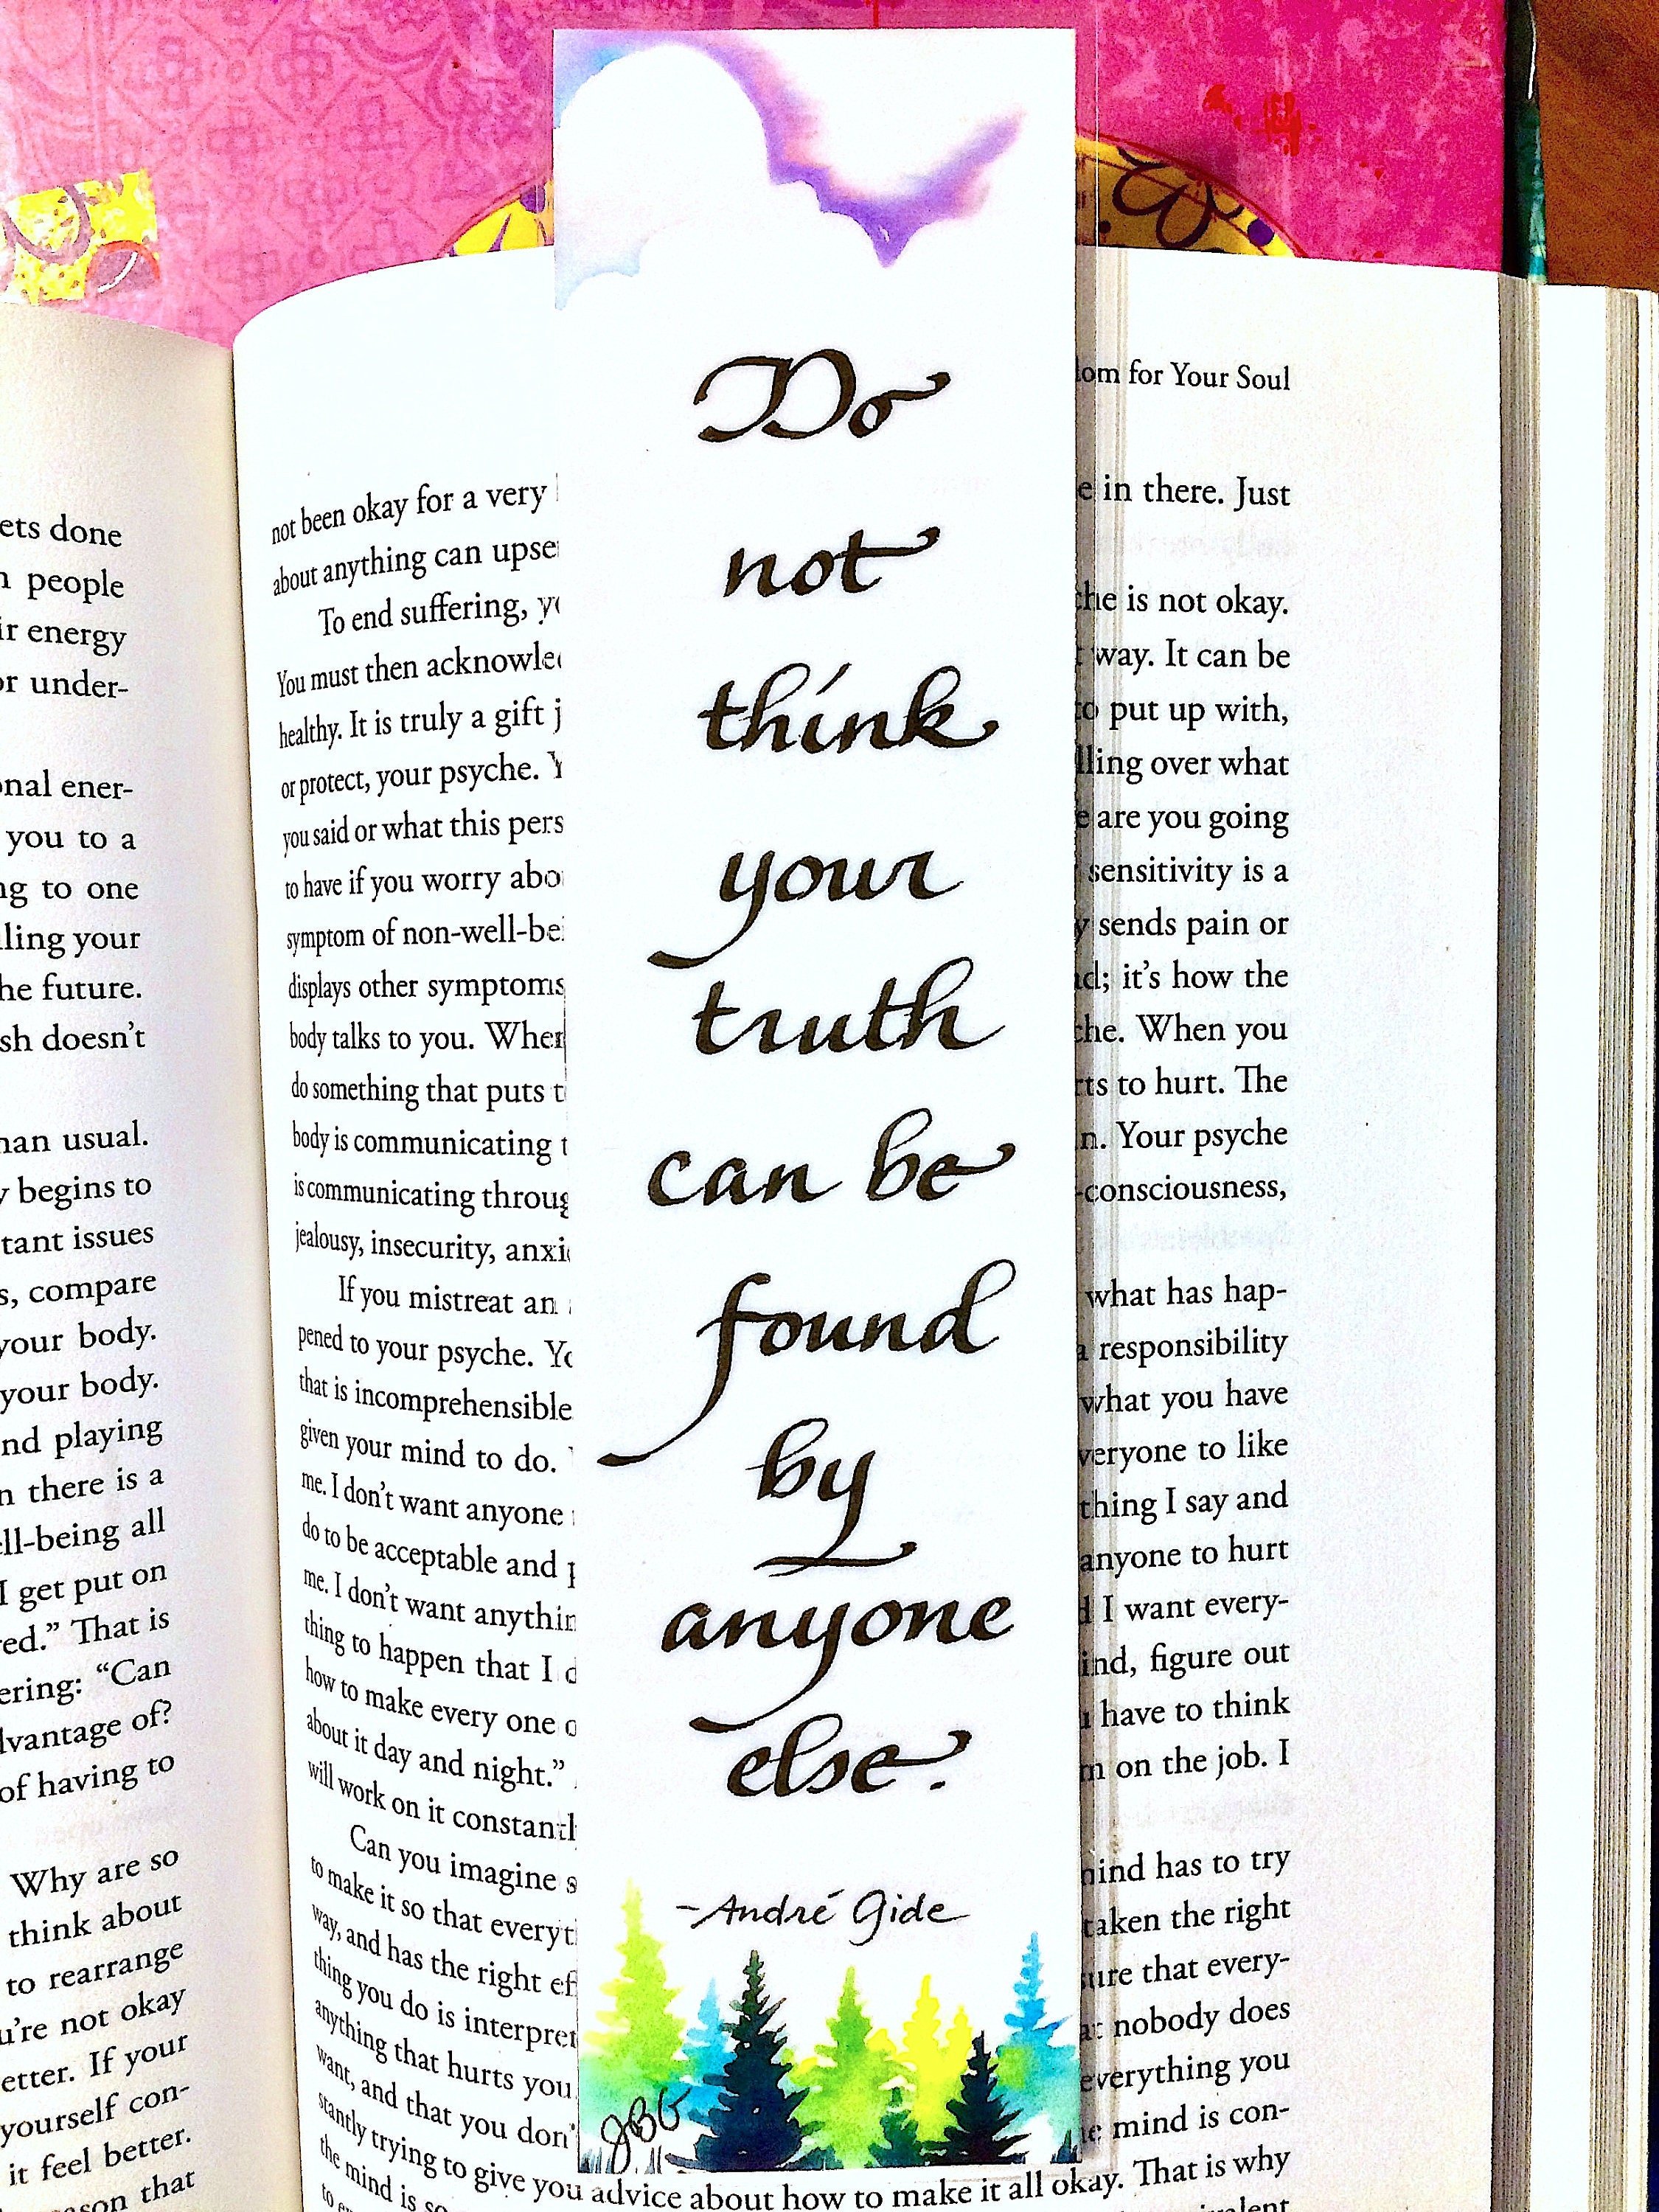 Do
not
think
your
truth
can be
found
by
anyone
else.
-André Gide
JBG
for Your Soul
ets done
people
energy
under-
ener-
you to a
to one
your
he future.
doesn't
usual.
begins to
issues
compare
your body.
your body.
playing
there is a
all
I get put on
That is
"Can
of?
of having to
Why are so
think about
to rearrange
not okay
If your
yourself con-
it feel better.
that
not been okay for a very
in there. Just
about anything can
To end suffering,
is not okay.
You must then
way. It can be
healthy. It is truly a gift
put up with,
or protect, your psyche.
over what
you said or what this
are you going
to have if you worry
sensitivity is a
symptom of
sends pain or
displays other symptoms
it's how the
body talks to you.
When you
do something that puts
to hurt. The
body is communicating
Your psyche
is communicating
consciousness,
jealousy, insecurity,
If you mistreat an
what has hap-
pened to your psyche.
responsibility
that is incomprehensible
what you have
given your mind to do.
to like
me. I don't want anyone
I say and
do to be acceptable and
anyone to hurt
me. I don't want
I want every-
thing to happen that I
figure out
how to make every one
have to think
about it day and night."
on the job. I
will work on it
Can you imagine
has to try
to make it so that
taken the right
way, and has the right
that every-
thing you do is
nobody does
anything that hurts you
everything you
want, and that you
mind is con-
stantly trying to give you advice about how to make it all okay. That is why
the mind is